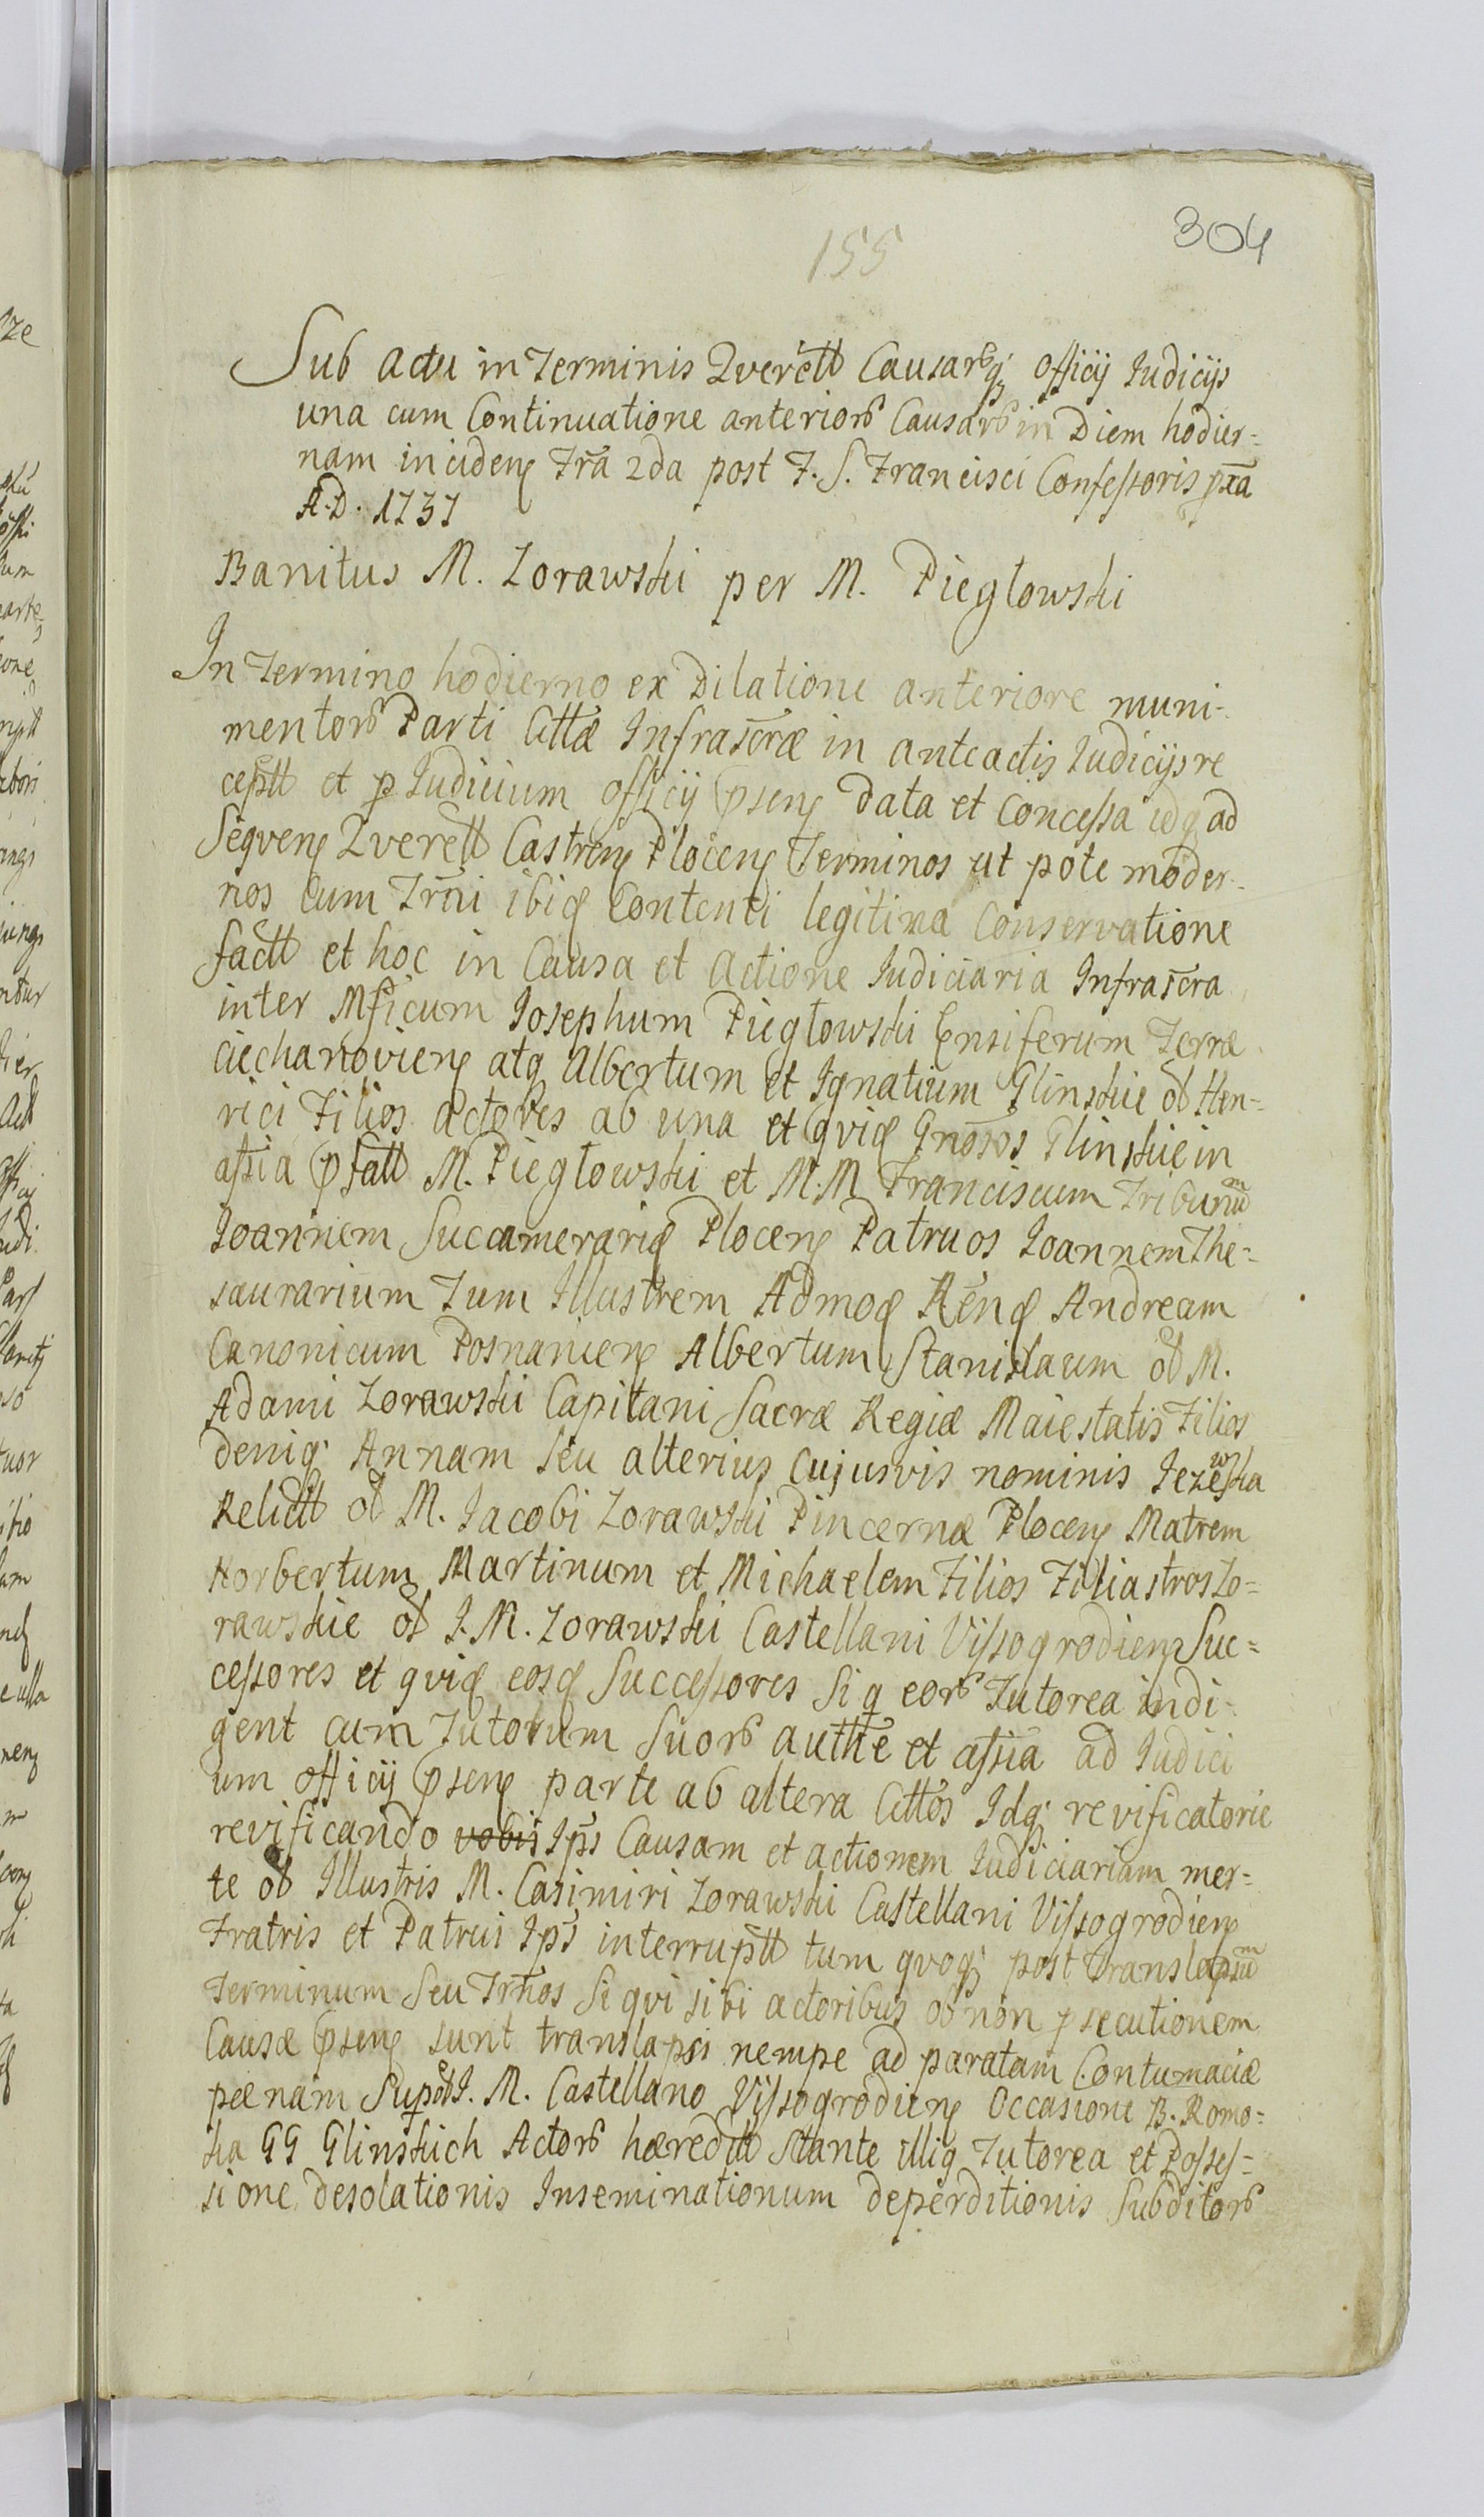 304
155
Sub actu in Terminis Qverell Causarq officij Iudicijs
una cum Continuatione anterior Causar in Diem hodier=
nam inciden Fra 2da post F. S. Francisci Confessoris pxa
A.D. 1737
Banitus M. Zorawski per M. Piegłowski
In Termino hodierno ex Dilatione anteriore muni=
mentor Parti Cittæ Infrascræ in anteactis Iudicijs re
ceptt et p Iudicium officij psens data et Concessa idq ad
Seqvens Qverell Castrens Plocens Terminos ut pote moder=
nos Cum Trni ibiq Contenti legitima Conservatione
factt et hoc in Causa et Actione Iudiciaria Infrascra
inter Mficum Iosephum Piegłowski Ensiferum Terræ
Ciechanoviens atq Albertum et Ignatium Glinskie ol Hen=
rici Filios Actores ab una et qviq Gnosos Glinskie in
assia pfatt M. Piegłowski et M.M Franciscum Tribunum
Ioannem Succamerariq Plocens Patruos Ioannem The=
saurarium Tum Illustrem Admoq Rendq Andream
Canonicum Posnaniens Albertum Stanislaum ol M.
Adami Zorawski Capitani Sacræ Regiæ Maiestatis Filios
deniq Annam seu alterius Cujusvis nominis Iezewska
Relictt ol M. Iacobi Zorawski Pincernæ Plocens Matrem
Norbertum Martinum et Michaelem Filios Filiastros Zo=
rawskie ol I. M. Zorawski Castellani Vissogrodiens Suc=
cessores et qviq eosq Successores si q eor Tutorea indi=
gent cum Tutorum Suor autthe et assia ad Iudici
um officij psens parte ab altera Cittos Idq revificatorie
revificando vobis Ips Causam et actionem Iudiciariam mer=
te ol Illustris M. Casimiri Zorawski Castellani Vissogrodiens
Fratris et Patrui Ips interruptt tum qvoq post translapsum
Terminum Seu Trnos Si qvi sibi actoribus ob non psecutionem
Causæ psens sunt translapsi nempe ad paratam Contumaciæ
pænam Supol I. M. Castellano Vissogrodiens Occasione B. Romo=
ka GG Glinskich Actor hæreditt Stante illiq Tutorea et Posses=
sione desolationis Inseminationum deperditionis Subditor